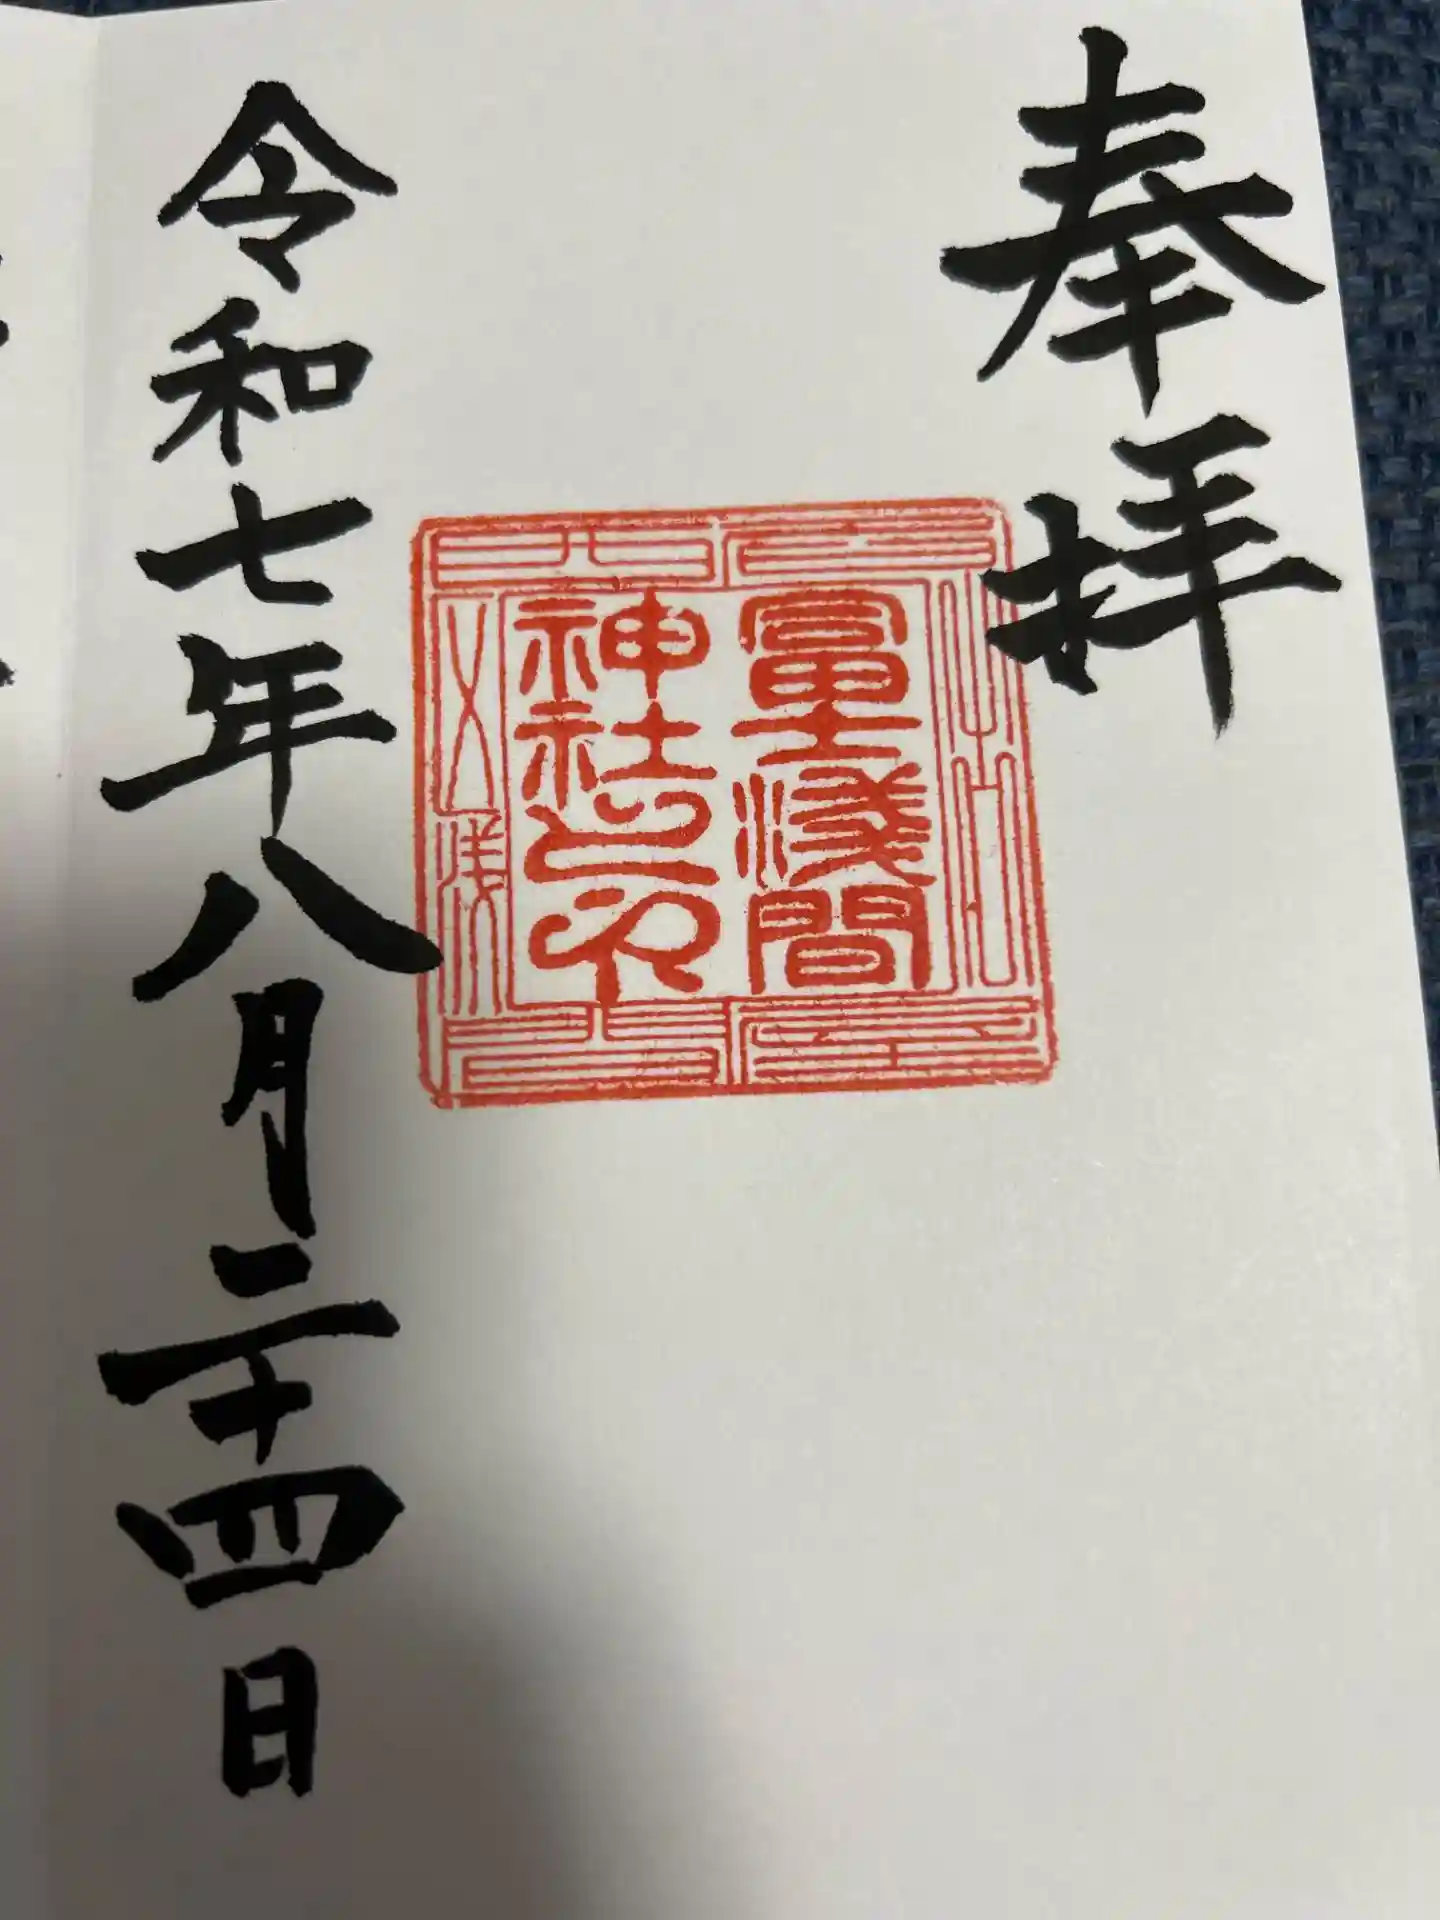 奉拝
冨士浅間
神社之印
令和七年八月二十四日